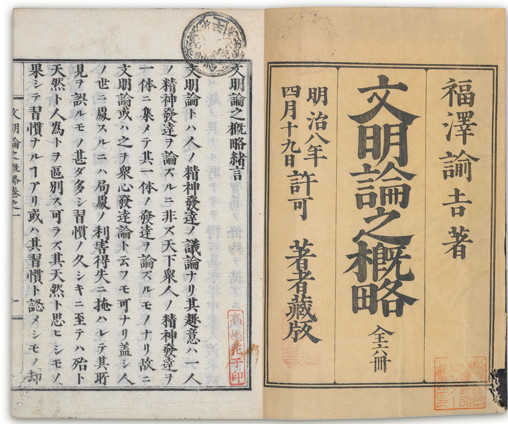 福澤諭吉著
文明論之概略 全六冊
明治八年四月十九日許可 著者藏版
文明論之概略緒言
文明論トハ人ノ精神發達ノ議論ナリ其趣意ハ一人
ノ精神發達ヲ論ズルニ非ズ天下衆人ノ精神發達ヲ
一体ニ集メテ其一体ノ發達ヲ論ズルモノナリ故ニ
文明論或ハ之ヲ衆心發達論ト云フモ可ナリ蓋シ人
ノ世ニ處スルニハ局處ノ利害得失ニ掩ハレテ其所
見ヲ誤ルモノ甚ダ多シ習慣ノ久シキニ至テハ殆ト
天然ト人爲トヲ區別ス可ラズ其天然ト思ヒシモノ、
果シテ習慣ナルヿアリ或ハ其習慣ト認メシモノ、却
文明論之概略卷之一
一